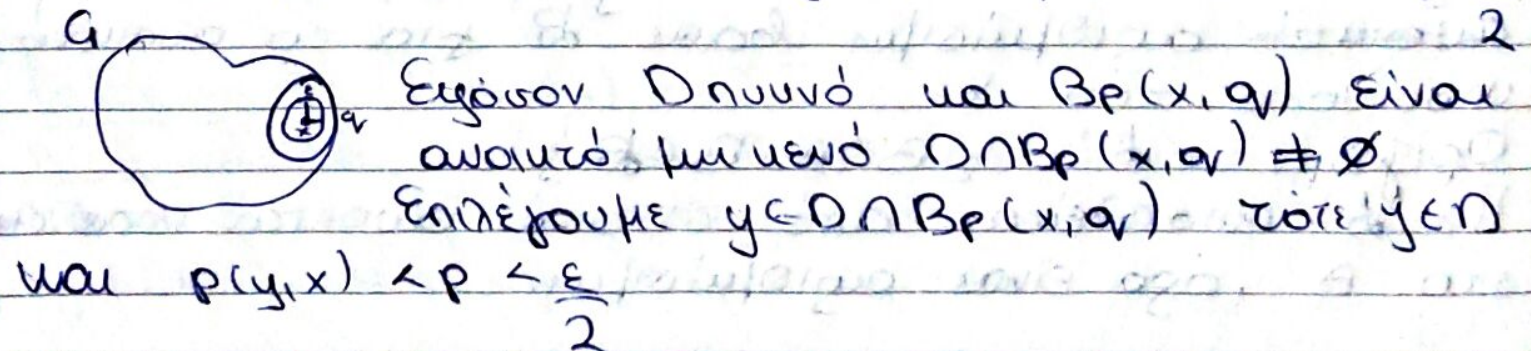 G 2
Εφόσον D πυκνό και Bρ(x, q) είναι
ανοικτό μη κενό D∩Bρ(x, q) ≠ ∅
Επιλέγουμε y∈D∩Bρ(x, q) τότε y∈D
q
και ρ(y, x) < ρ < ε/2